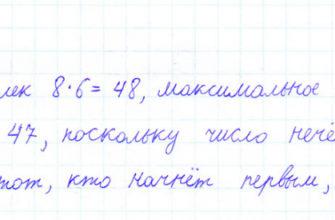 8·6 = 48, максимальное
47, поскольку число
кто начнёт первым,